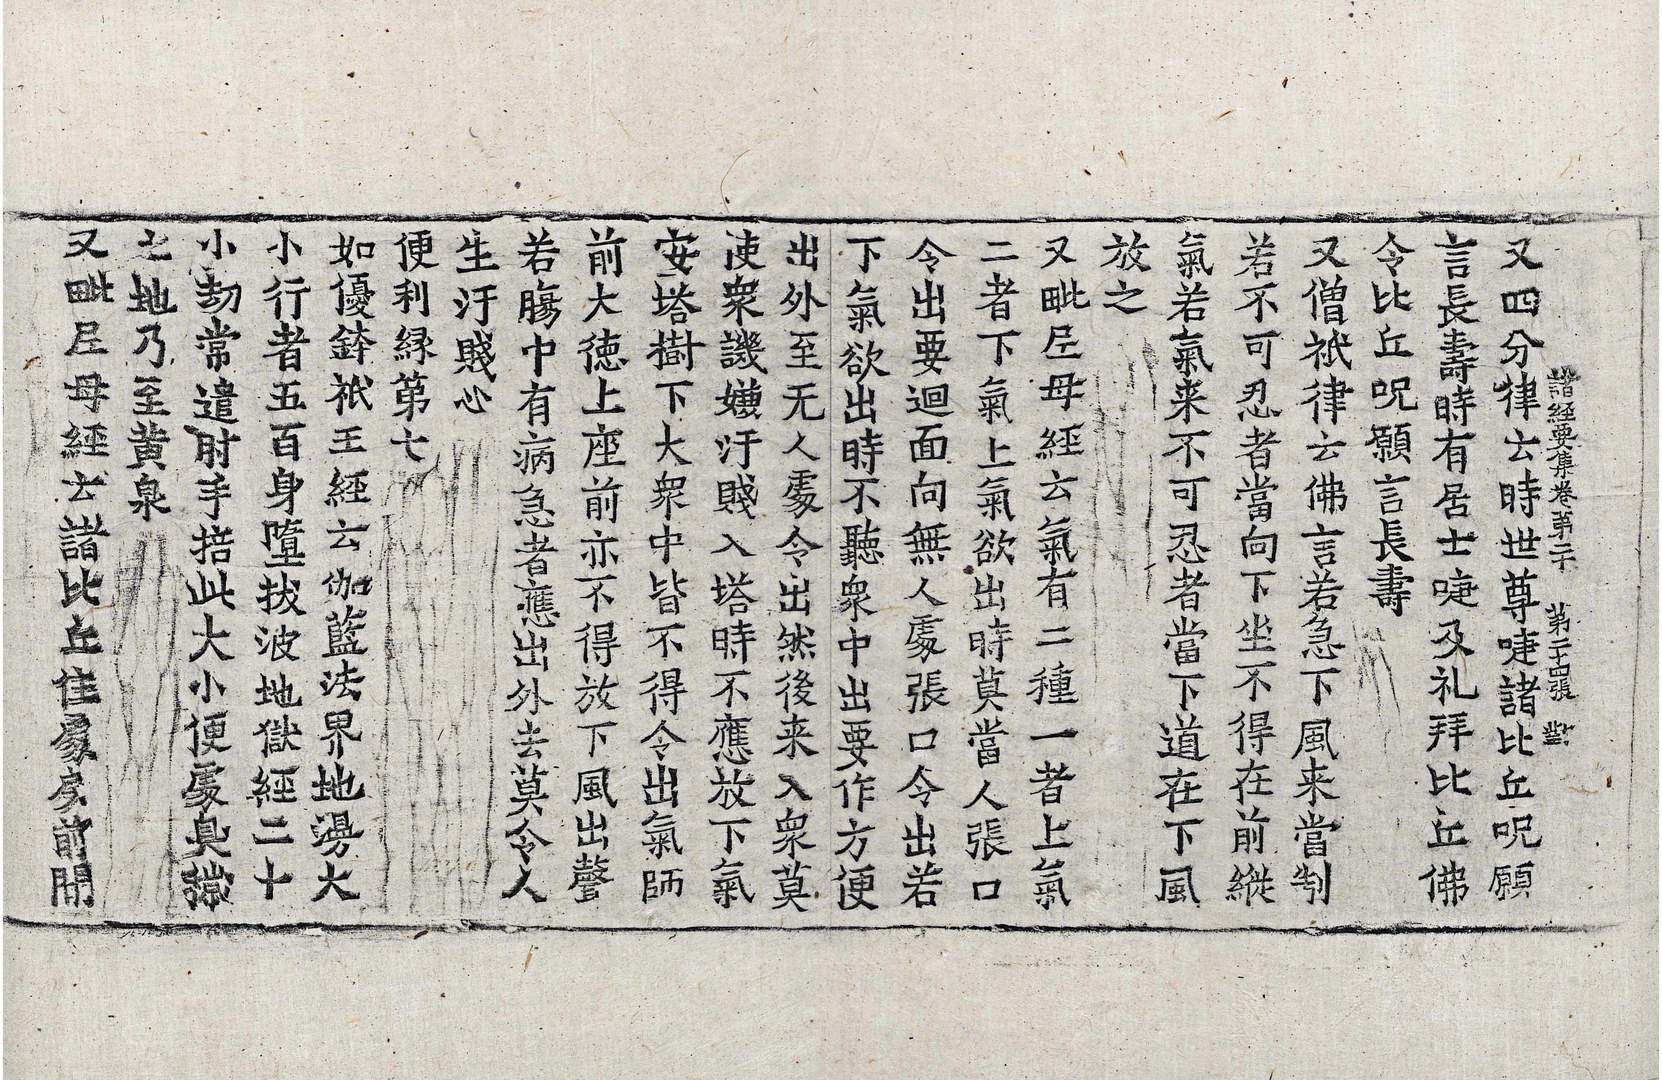 諸經要集卷第二十 第二十四張 對
又四分律云時世尊啑諸比丘呪願
言長壽時有居士啑及礼拜比丘佛
令比丘呪願言長壽
又僧祇律云佛言若急下風来當制
若不可忍者當向下坐不得在前縱
氣若氣来不可忍者當下道在下風
放之
又毗尼母經云氣有二種一者上氣
二者下氣上氣欲出時莫當人張口
令出要迴面向無人處張口令出若
下氣欲出時不聽衆中出要作方便
出外至无人處令出然後来入衆莫
使衆譏嫌汙賤入塔時不應放下氣
安塔樹下大衆中皆不得令出氣師
前大德上座前亦不得放下風出聲
若膓中有病急者應出外去莫令人
生汙賤心
便利緣第七
如優鉢祇王經云伽藍法界地澷大
小行者五百身墮拔波地獄經二十
小劫常遣肘手掊此大小便處臭穢
之地乃至黄泉
又毗尼母經云諸比丘住處房前閒